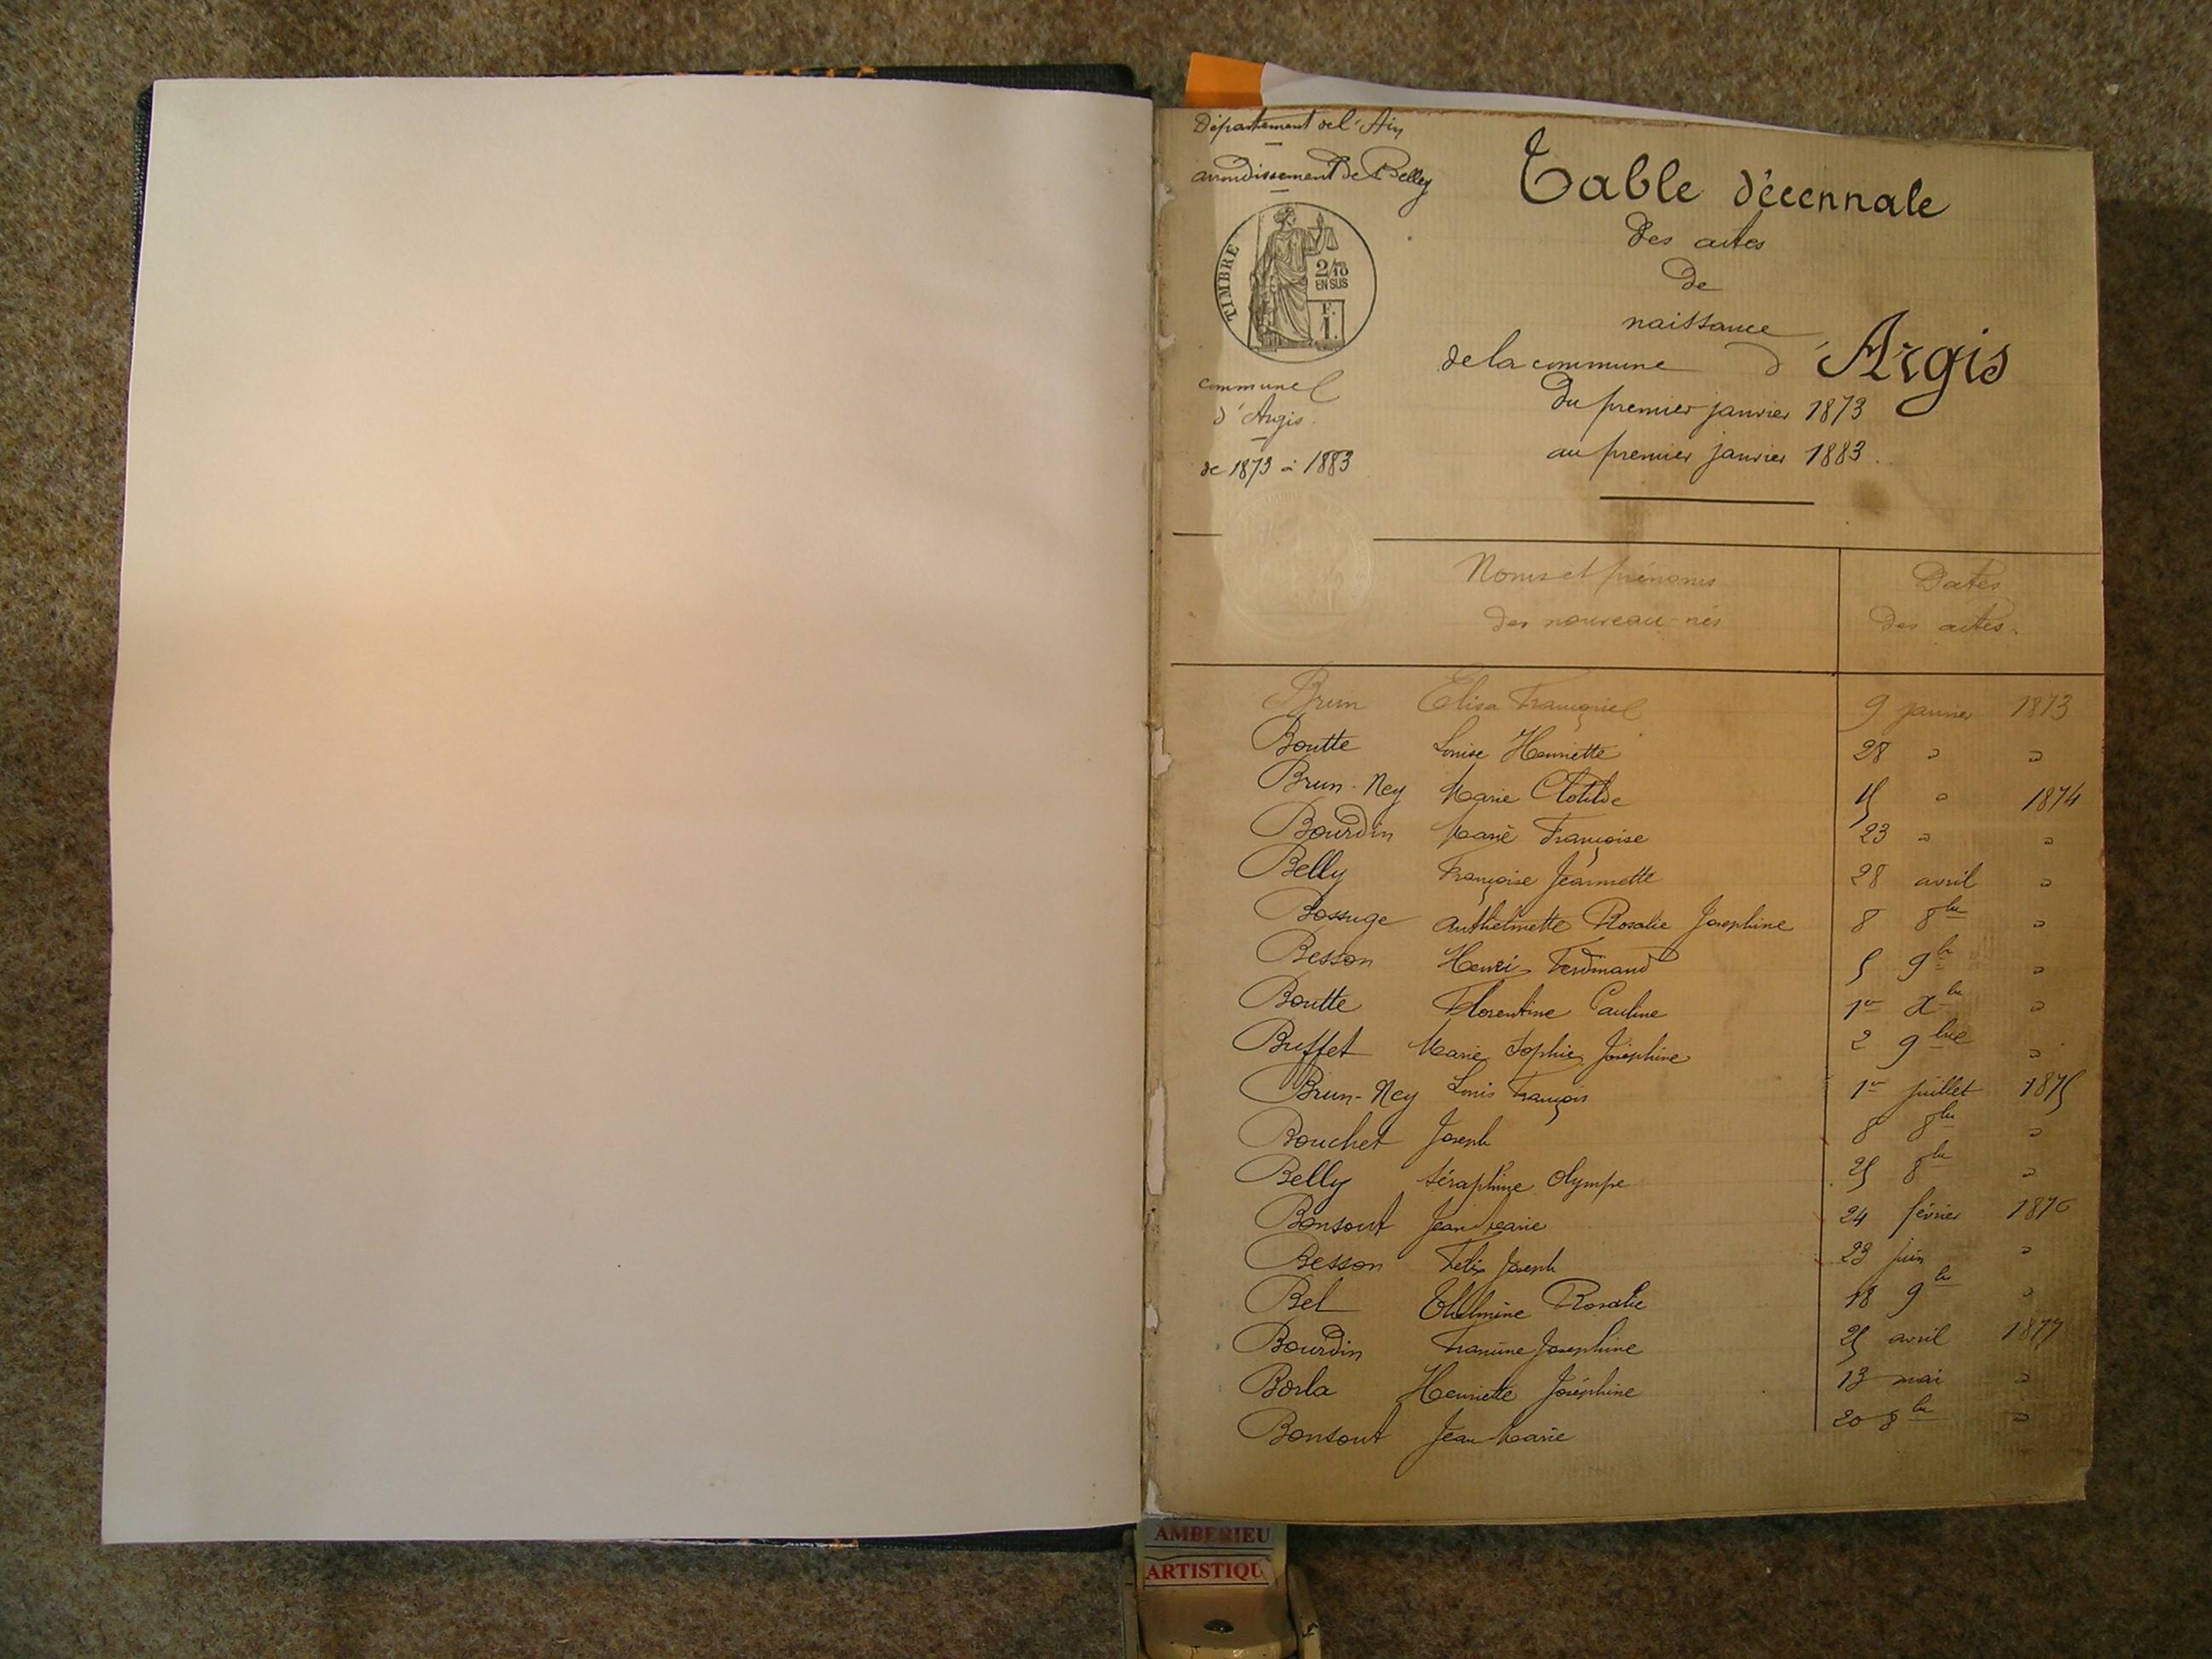 Département de l'Ain
arrondissement de Belley
TIMBRE
2/10
EN SUS
F.
1.
commune
d'Argis.
de 1873 à 1883
Table décennale
des actes
de
naissance
de la commune d'Argis
Du premier janvier 1873
au premier janvier 1883.
Noms et prénoms
des nouveau-nés
Dates
des actes.
Brun Elisa Françoise 9 janvier 1873
Boutte Louise Henriette 28 " "
Brun-Ney Marie Clotilde 15 " 1874
Bourdin Marie Françoise 23 " "
Belly Françoise Jeannette 28 avril "
Bossuge Anthelmette Rosalie Josephine 8 8bre "
Besson Henri Ferdinand 5 9bre "
Boutte Florentine Pauline 1er Xbre "
Buffet Marie Sophie Joséphine 2 9bre "
Brun-Ney Louis François 1er juillet 1875
Bouchet Joseph 8 8bre "
Belly Séraphine Olympe 25 8bre "
Bonsout Jean Marie 24 février 1876
Besson Félix Joseph 23 juin "
Bel Rosalie 18 9bre "
Bourdin Francine Josephine 25 avril 1877
Borla Henriette Joséphine 13 mai "
Bonsout Jean Marie 20 8bre "
AMBERIEU
ARTISTIQU